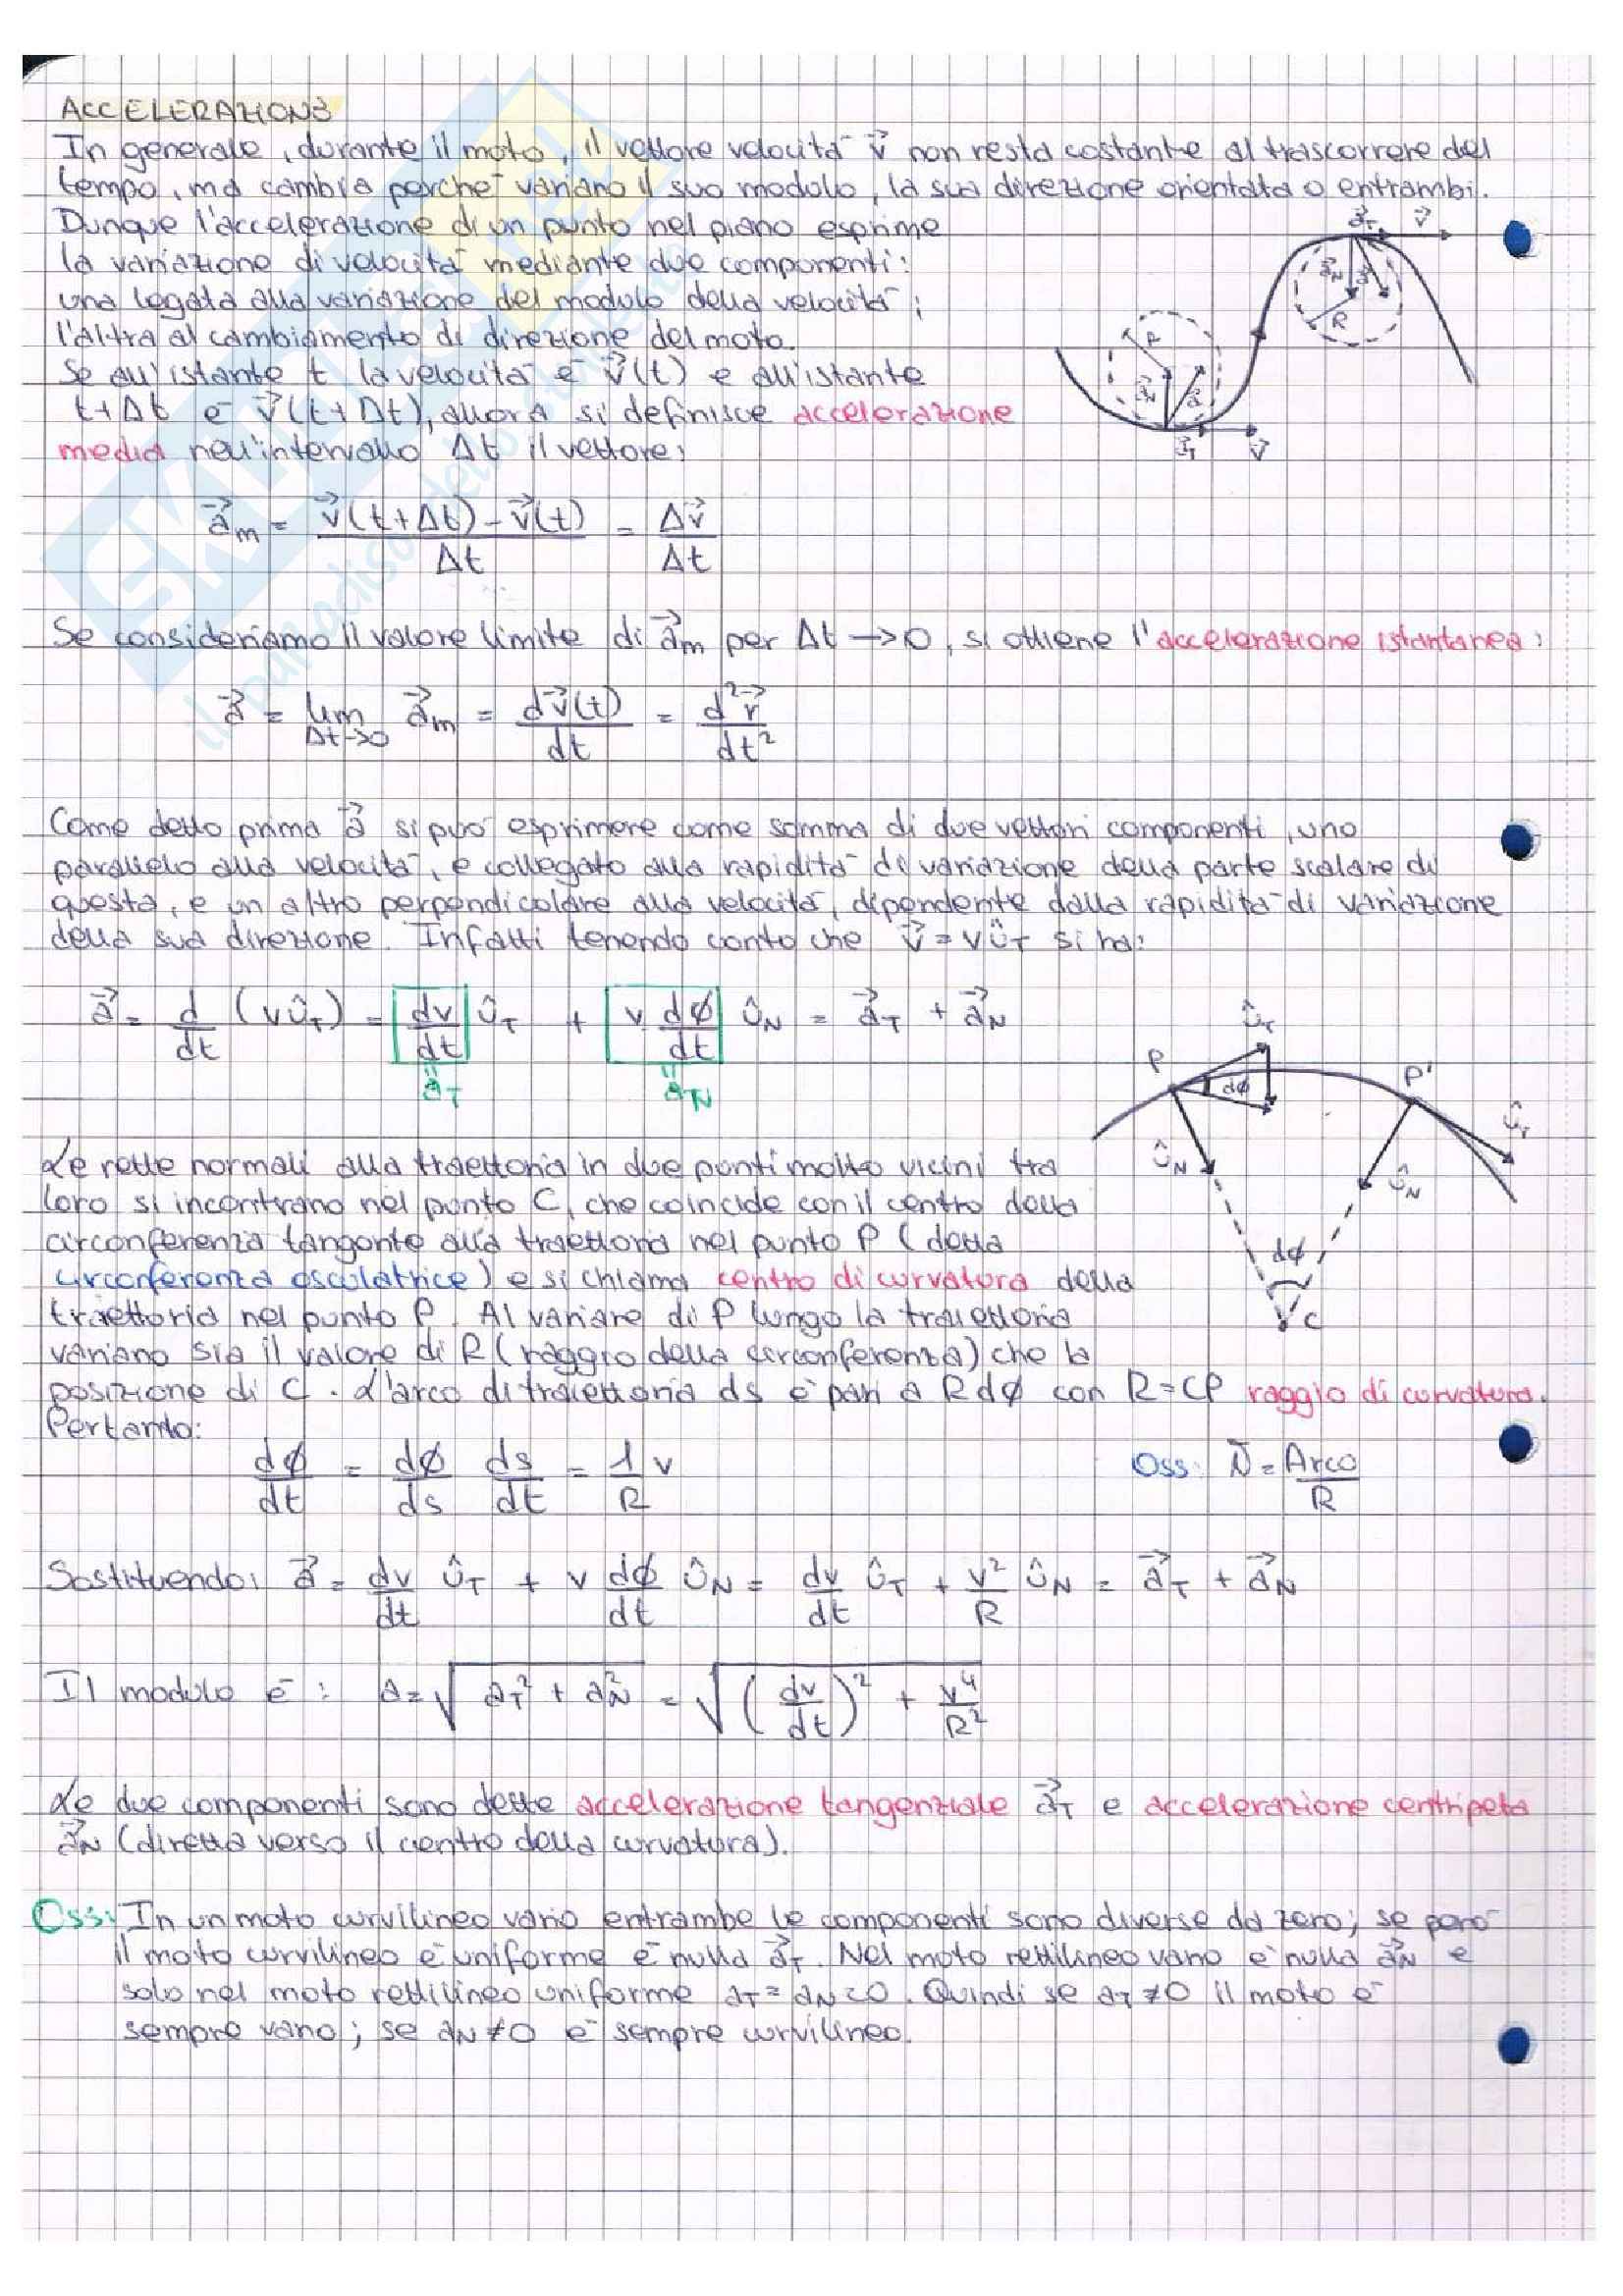 ACCELERAZIONE
In generale, durante il moto, il vettore velocità v⃗ non resta costante al trascorrere del
tempo, ma cambia perché variano il suo modulo, la sua direzione orientata o entrambi.
Dunque l'accelerazione di un punto nel piano esprime
la variazione di velocità mediante due componenti:
una legata alla variazione del modulo della velocità;
l'altra al cambiamento di direzione del moto.
Se all'istante t la velocità è v⃗(t) e all'istante
t+Δt è v⃗(t+Δt), allora si definisce accelerazione
media nell'intervallo Δt il vettore:
a⃗_T v⃗
a⃗_N a⃗
R
R
a⃗_N a⃗
a⃗_T v⃗
a⃗_m = (v⃗(t+Δt) - v⃗(t))/Δt = Δv⃗/Δt
Se consideriamo il valore limite di a⃗_m per Δt → 0, si ottiene l'accelerazione istantanea:
a⃗ = lim_{Δt→0} a⃗_m = dv⃗(t)/dt = d²r⃗/dt²
Come detto prima a⃗ si può esprimere come somma di due vettori componenti, uno
parallelo alla velocità, e collegato alla rapidità di variazione della parte scalare di
questa, e un altro perpendicolare alla velocità, dipendente dalla rapidità di variazione
della sua direzione. Infatti tenendo conto che v⃗ = v û_T si ha:
a⃗ = d/dt (v û_T) = dv/dt û_T + v dφ/dt û_N = a⃗_T + a⃗_N
= a_T = a_N
û_T
P dφ P'
û_N û_N û_T
dφ
C
Le rette normali alla traiettoria in due punti molto vicini tra
loro si incontrano nel punto C, che coincide con il centro della
circonferenza tangente alla traiettoria nel punto P (detta
circonferenza osculatrice) e si chiama centro di curvatura della
traiettoria nel punto P. Al variare di P lungo la traiettoria
variano sia il valore di R (raggio della circonferenza) che la
posizione di C. L'arco di traiettoria ds è pari a R dφ con R=CP raggio di curvatura.
Pertanto:
dφ/dt = dφ/ds ds/dt = 1/R v
Oss: = Arco/R
Sostituendo: a⃗ = dv/dt û_T + v dφ/dt û_N = dv/dt û_T + v²/R û_N = a⃗_T + a⃗_N
Il modulo è: a = √(a_T² + a_N²) = √((dv/dt)² + v⁴/R²)
Le due componenti sono dette accelerazione tangenziale a⃗_T e accelerazione centripeta
a⃗_N (diretta verso il centro della curvatura).
Oss: In un moto curvilineo vario entrambe le componenti sono diverse da zero; se però
il moto curvilineo è uniforme è nulla a⃗_T. Nel moto rettilineo vario è nulla a⃗_N e
solo nel moto rettilineo uniforme a_T = a_N = 0. Quindi se a_T ≠ 0 il moto è
sempre vario; se a_N ≠ 0 è sempre curvilineo.